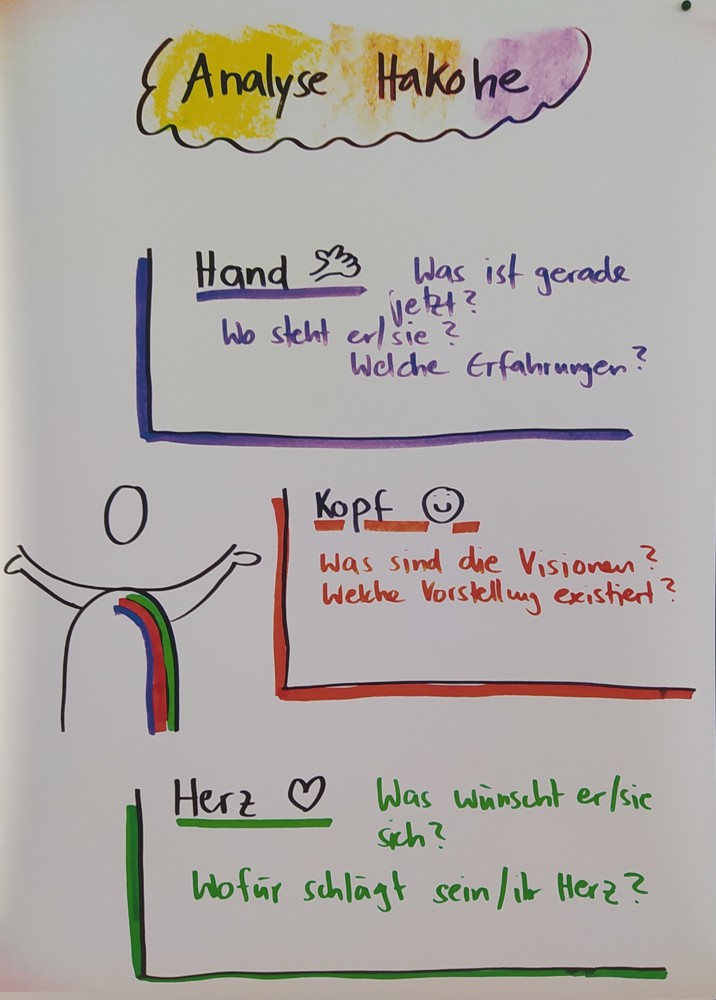 Analyse Hakohe
Hand Was ist gerade
jetzt?
Wo steht er/sie?
Welche Erfahrungen?
Kopf
Was sind die Visionen?
Welche Vorstellung existiert?
Herz Was wünscht er/sie
sich?
Wofür schlägt sein/ihr Herz?